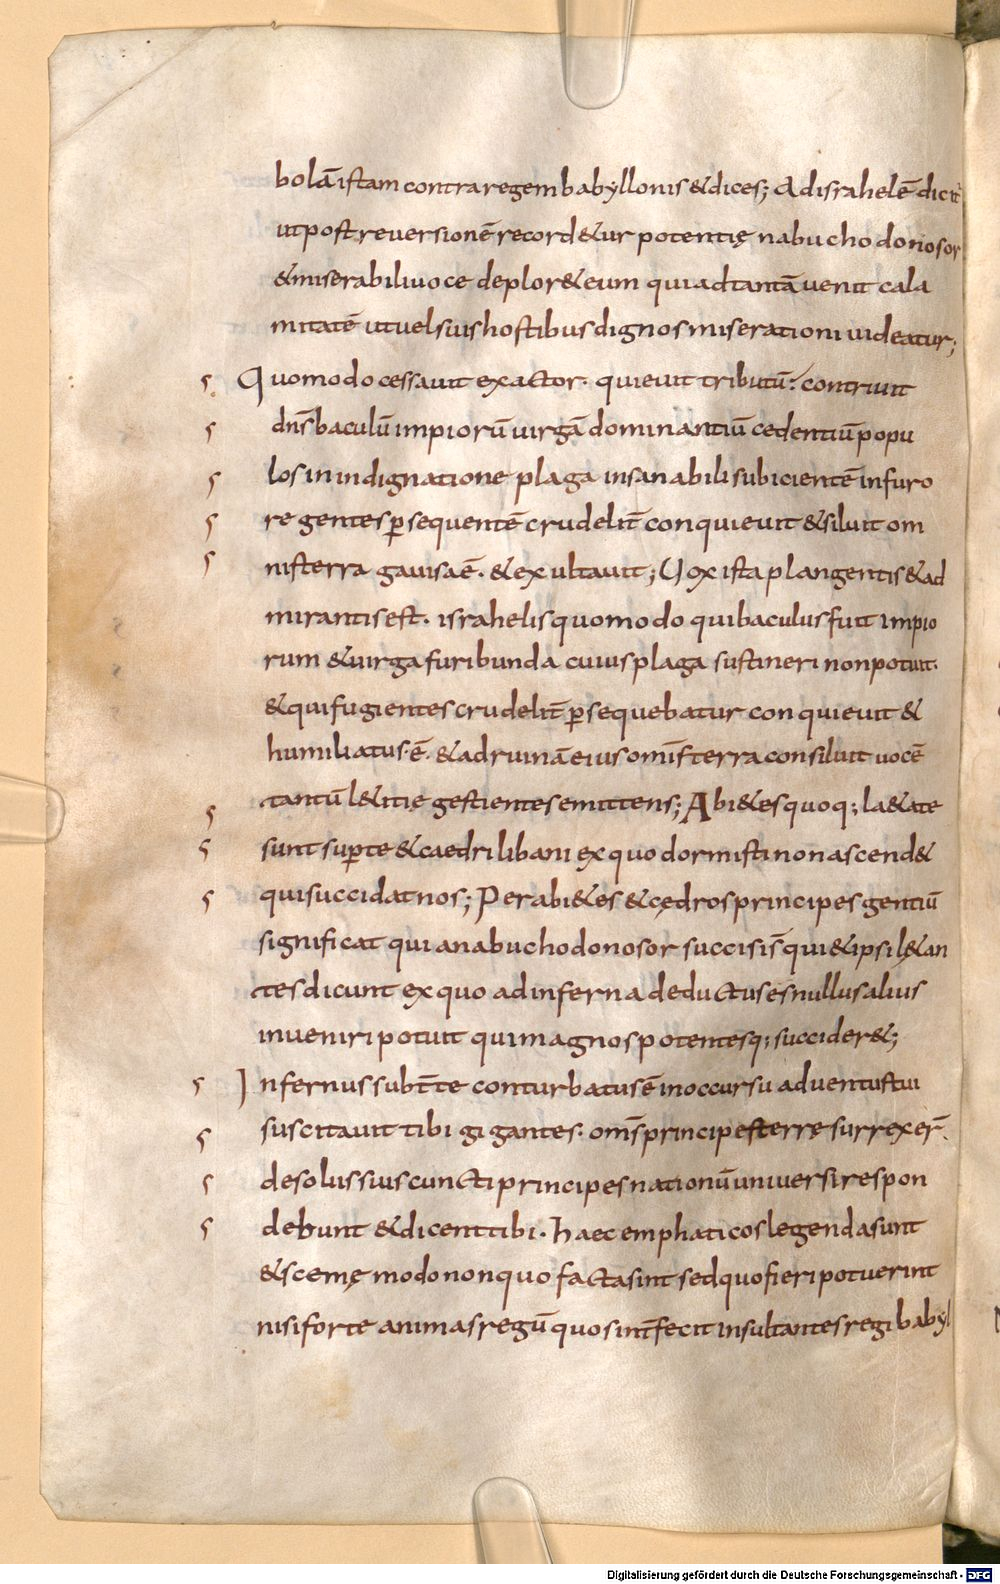 bolā istam contra regem babyllonis & dices; Ad israhelē dicit̄
ut post reversionē record&ur potentię nabuchodonosor
& miserabili uoce deplor& eum qui ad tantā uenit cala
mitatē ut uel suis hostibus dignos miserationi uideatur;
Quomodo cessauit exactor· quieuit tributū· contriuit
dn̄s baculū impiorū uirgā dominantiū cedentiū popu
los in indignatione plaga insanabili subicientē in furo
re gentes ꝑsequentē crudelit̄ conquieuit & siluit om
nis terra gauisa ē· & exultauit; Uox ista plangentis & ad
mirantis est· israhelis quomodo qui baculus fuit impio
rum & uirga furibunda cuius plaga sustineri non potuit·
& qui fugientes crudelit̄ ꝑsequebatur conquieuit &
humiliatus· ē· & ad ruinā eius om̄is terra consiluit uocē
tantū l&itię gestientes emittens; Abi&es quoq; la&ate
sunt suꝑ te & caedri libani ex quo dormisti non ascend&
qui succidat nos; Per abi&es & cędros principes gentiū
significat qui a nabuchodonosor succisi s̄ qui & ipsi l&an
tes dicunt ex quo ad inferna deductus es nullus alius
inueniri potuit qui magnos potentesq; succider&;
Infernus subt̄ te conturbatus ē in occursu aduentus tui
suscitauit tibi gigantes· om̄s principes terrę surrexer̄·
de solus suis cuncti principes nationū uniuersi respon
debunt & dicent tibi· haec emphaticos legenda sunt
& scemę modo non quo facta sint sed quo fieri potuerint
nisi forte animas regū quos int̄fecit insultantes regi babyl
Digitalisierung gefördert durch die Deutsche Forschungsgemeinschaft - DFG